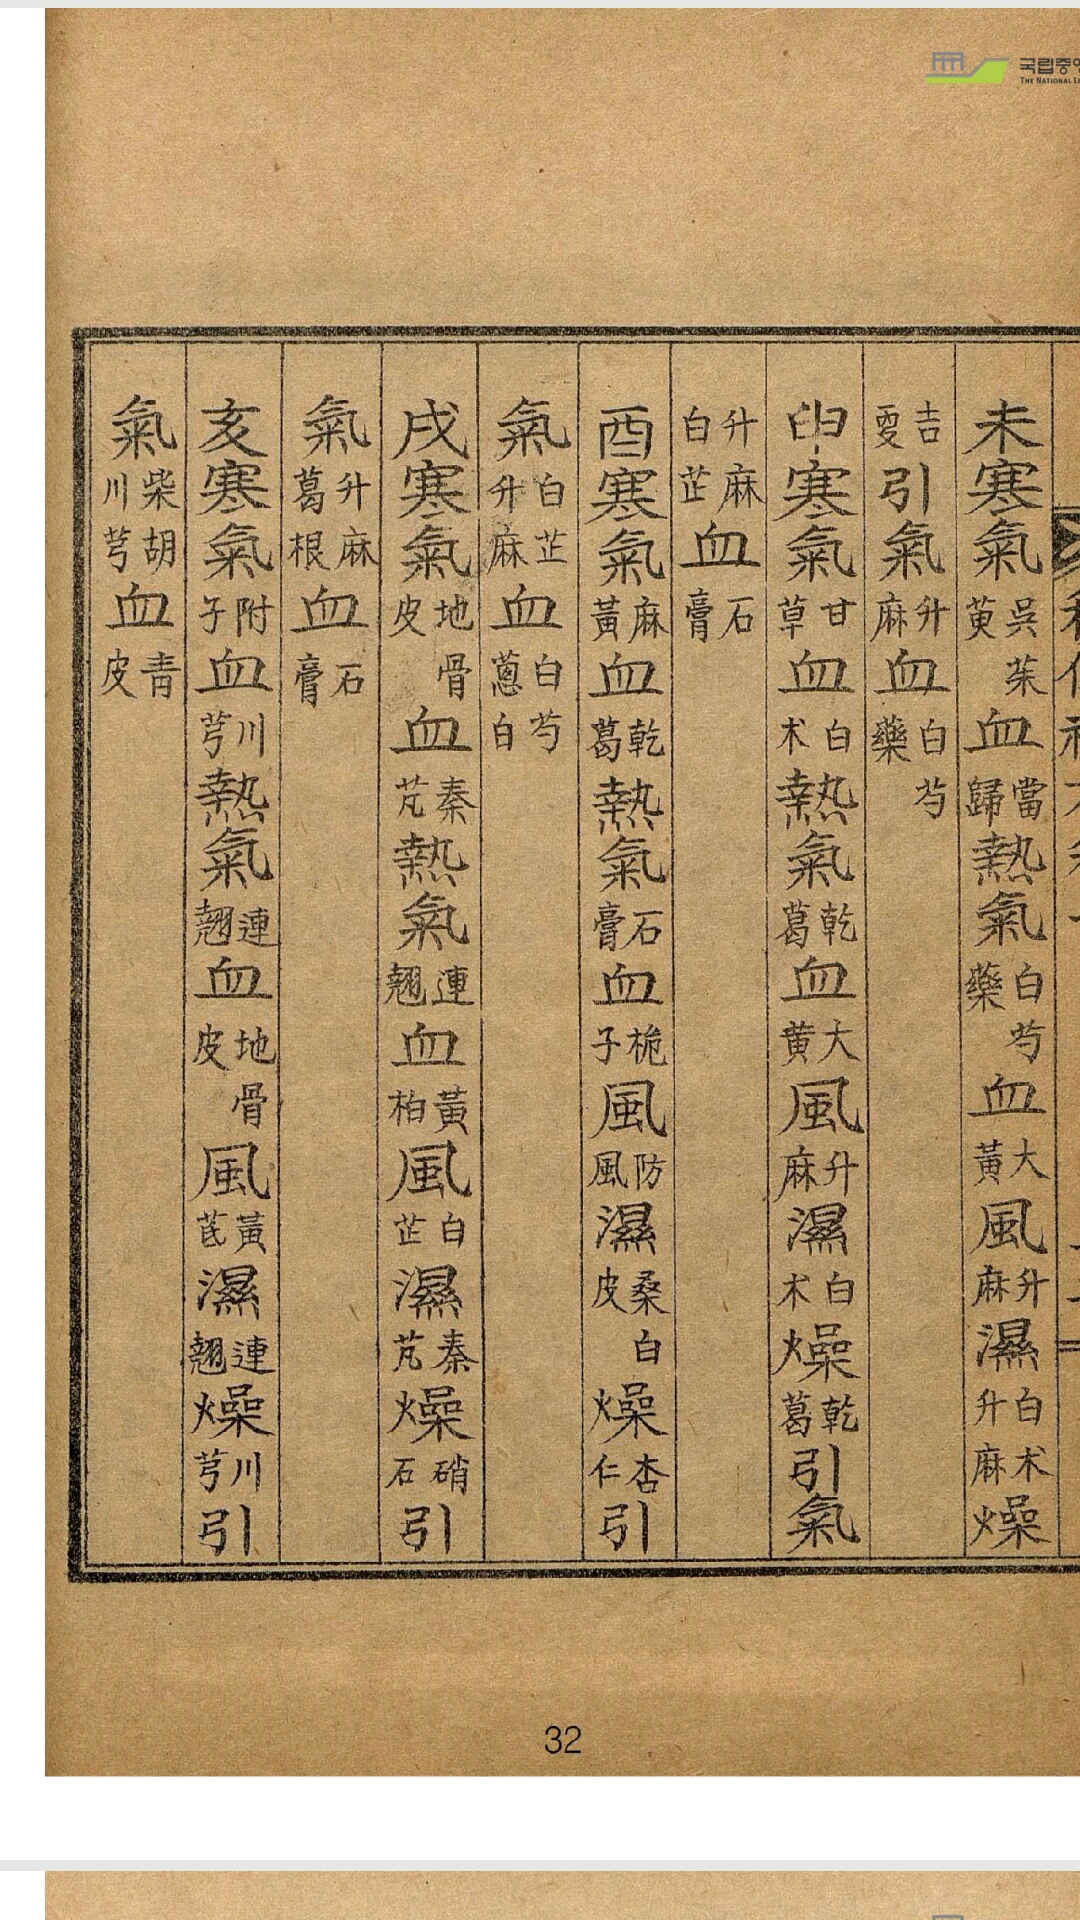 국립중앙
THE NATIONAL L
未寒氣吳茱萸血當歸熱氣白芍藥血大黃風升麻濕白朮升麻燥
吉更引氣升麻血白芍藥
申寒氣甘草血白朮熱氣乾葛血大黃風升麻濕白朮燥乾葛引氣
升麻白芷血石膏
酉寒氣麻黃血乾葛熱氣石膏血梔子風防風濕桑白皮燥杏仁引
氣白芷升麻血白芍蔥白
戌寒氣地骨皮血秦芃熱氣連翹血黃柏風白芷濕秦芃燥硝石引
氣升麻葛根血石膏
亥寒氣附子血川芎熱氣連翹血地骨皮風黃芪濕連翹燥川芎引
氣柴胡川芎血青皮
32